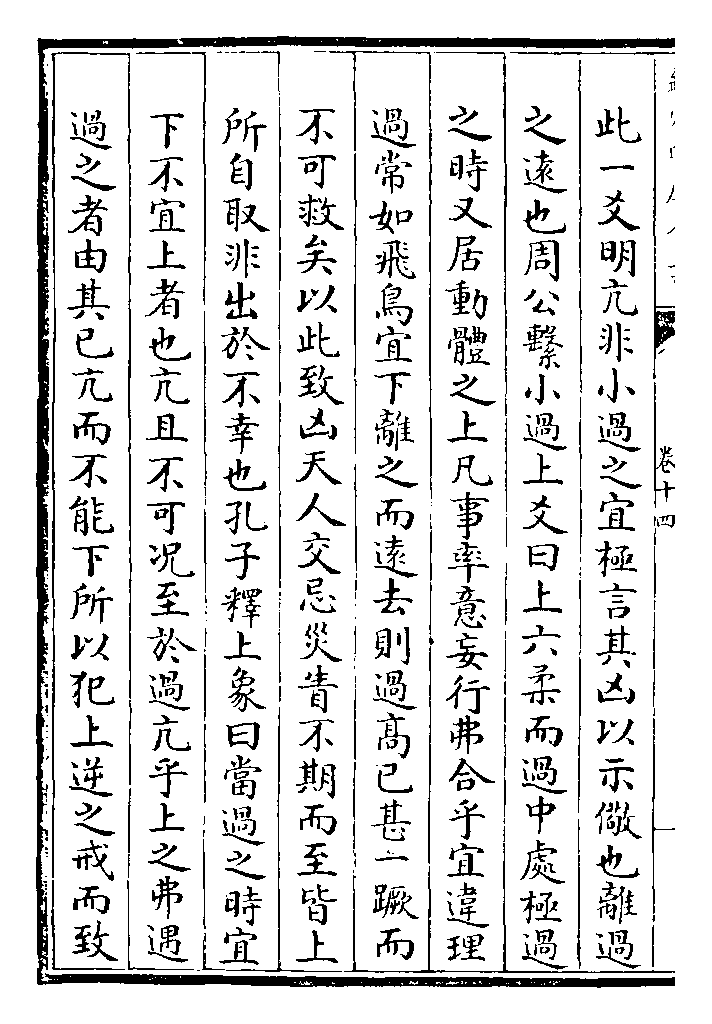 此一爻明亢非小過之宜極言其凶以示儆也離過
之遠也周公繫小過上爻曰上六柔而過中處極過
之時又居動體之上凡事率意妄行弗合乎宜違理
過常如飛鳥宜下離之而遠去則過髙已甚一蹶而
不可救矣以此致凶天人交忌災眚不期而至皆上
所自取非出於不幸也孔子釋上象曰當過之時宜
下不宜上者也亢且不可况至於過亢乎上之弗遇
過之者由其已亢而不能下所以犯上逆之戒而致
卷十四